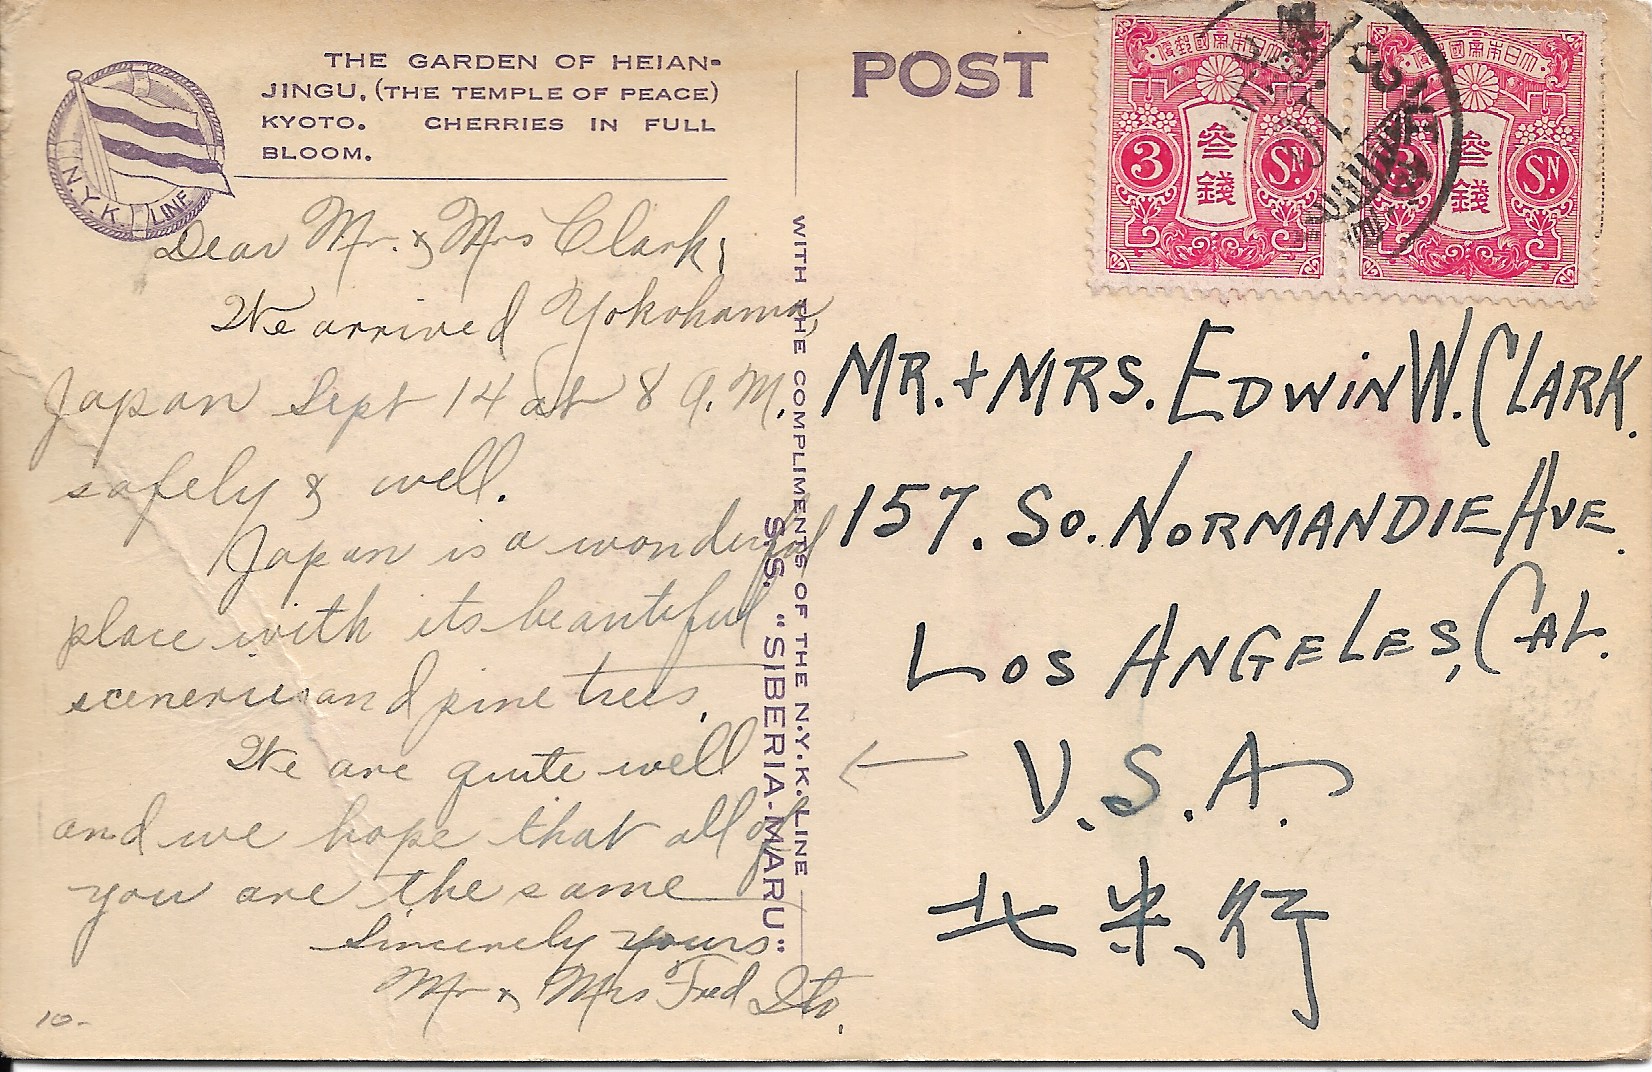 THE GARDEN OF HEIAN-
JINGU, (THE TEMPLE OF PEACE)
KYOTO. CHERRIES IN FULL
BLOOM.
N.Y.K. LINE
POST
大日本帝國郵便
3
参
錢
SN.
大日本帝國郵便
3
参
錢
SN.
Dear Mr. & Mrs Clark,
We arrived Yokohama,
Japan Sept 14 at 8 A.M.
safely & well.
Japan is a wonderful
place with its beautiful
sceneries and pine trees.
We are quite well
and we hope that all of
you are the same
Sincerely yours
Mr & Mrs Fred Ito.
10-
WITH THE COMPLIMENTS OF THE N.Y.K. LINE
S.S. "SIBERIA-MARU"
MR. + MRS. EDWIN W. CLARK.
157. SO. NORMANDIE AVE.
LOS ANGELES, CAL.
U.S.A.
北米行